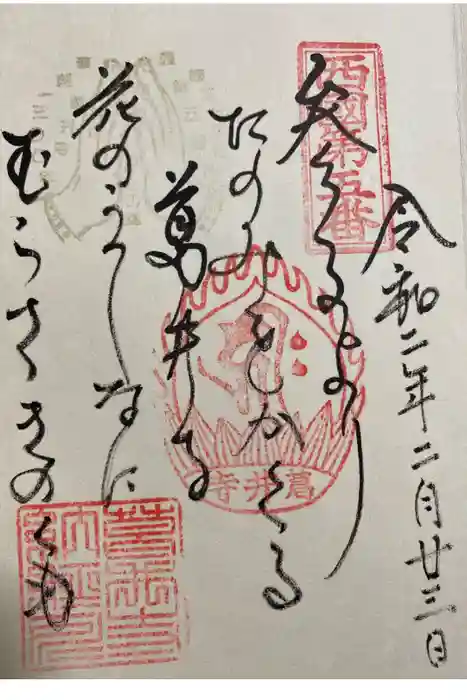 令和二年二月廿三日
西國第五番
参るより
たのみをかくる
葛井寺
花のうてなに
むらさきのくも
葛井寺